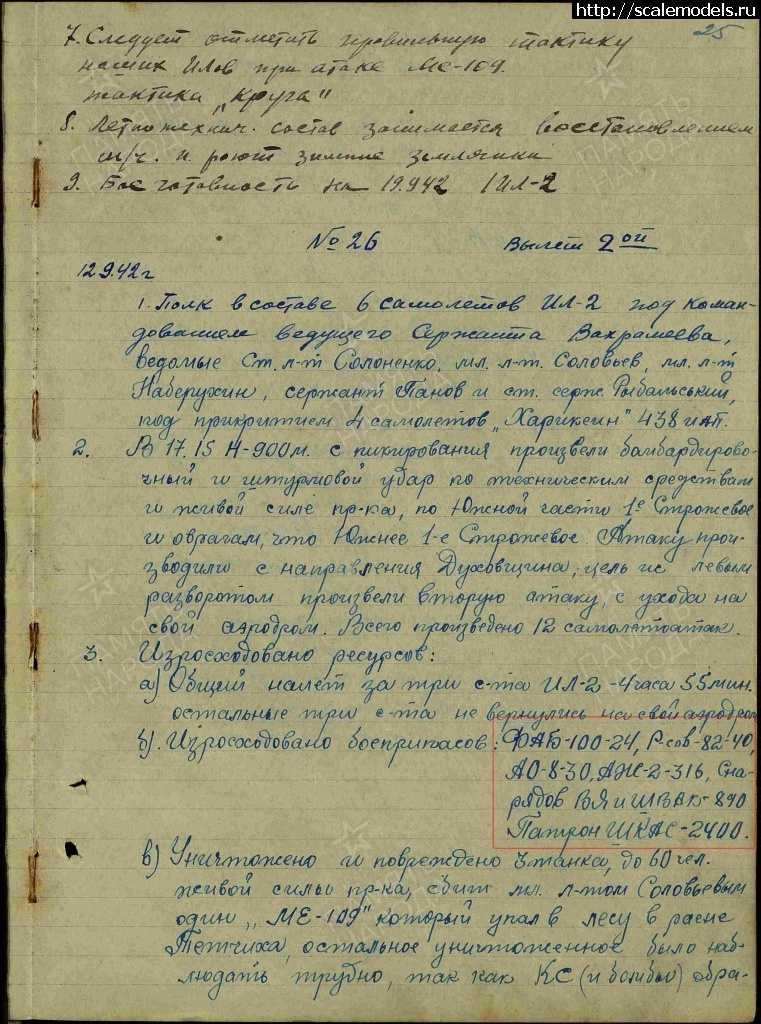 http://scalemodels.ru
25
7. Следует отметить правильную тактику
наших Илов при атаке МЕ-109.
тактика „Круга"
8. Летно технич. состав занимается восстановлением
м/ч. и роют зимние землянки
9. Бое готовность на 19.9.42 1 Ил-2
№ 26 Вылет 2ой
12.9.42г
1. Полк в составе 6 самолетов ИЛ-2 под коман-
дованием ведущего Сержанта Вахрамеева,
ведомые Ст. л-т Солоненко, мл. л-т. Соловьев, мл. л-т
Наберухин, сержант Панов и ст. серж. Рыбальский,
под прикритием 4 самолетов „Харикеин" 438 иап.
2. В 17.15 Н-900м. с пикирования произвели бомбардирово-
чный и штурмовой удар по техническим средствам
и живой силе пр-ка, по Южной части 1е Строжевое
и оврагам, что Южнее 1-е Строжевое. Атаку прои-
зводили с направления Духовщина, цель ис левым
разворотом произвели вторую атаку, с ухода на
свой аэродром. Всего произведено 12 самолетоатак.
3. Изросходовано ресурсов:
а) Общий налет за три с-та ИЛ-2 -4 часа 55 мин.
остальные три с-та не вернулись на свой аэродром
б). Изросходовано боеприпасов: ФАБ-100-24, Р-сов-82-40,
АО-8-30, АЖ-2-316, Сна-
рядов ВЯ и ШВАК-840
Патрон ШКАС-2400.
в) Уничтожено и повреждено 3 танка, до 60 чел.
живой силы пр-ка, сбит мл. л-том Соловьевым
один „МЕ-109" который упал в лесу в раене
Тетчиха, остальное уничтоженное было наб-
людать трудно, так как КС (и бомбы) обра-